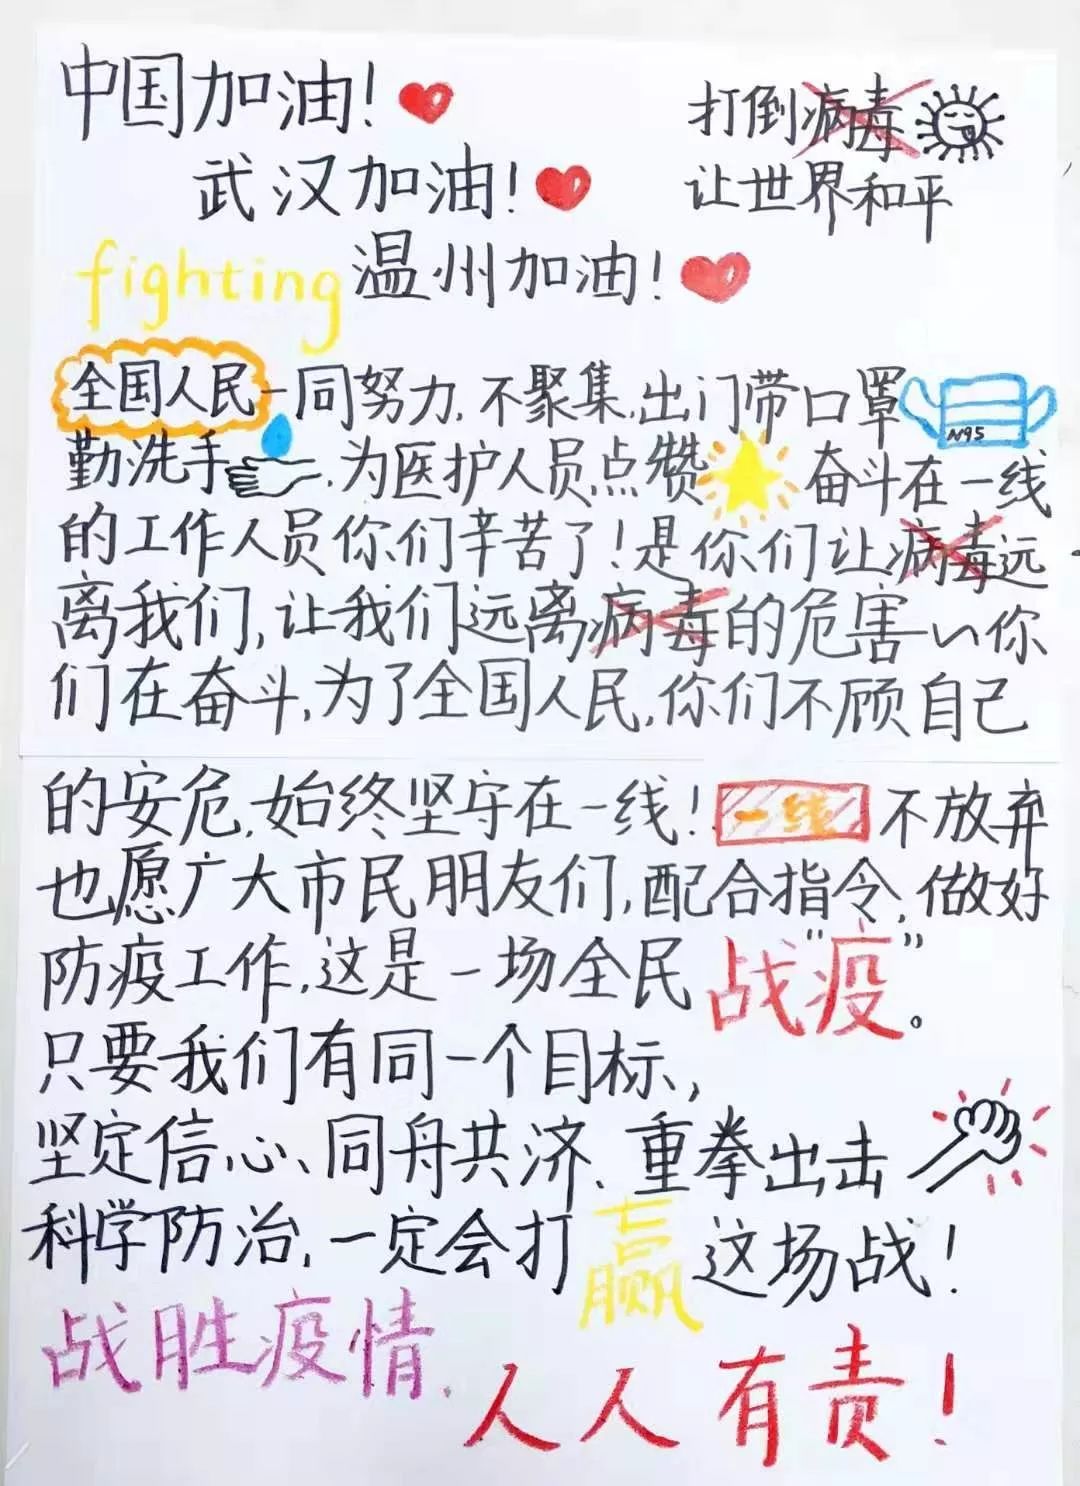 中国加油!
武汉加油!
fighting 温州加油!
打倒病毒
让世界和平
全国人民一同努力,不聚集,出门带口罩 N95
勤洗手,为医护人员点赞 奋斗在一线
的工作人员你们辛苦了!是你们让病毒远
离我们,让我们远离病毒的危害~你
们在奋斗,为了全国人民,你们不顾自己
的安危,始终坚守在一线!一线 不放弃
也愿广大市民朋友们,配合指令,做好
防疫工作,这是一场全民战“疫”。
只要我们有同一个目标,
坚定信心、同舟共济、重拳出击
科学防治,一定会打赢这场战!
战胜疫情,
人人有责!